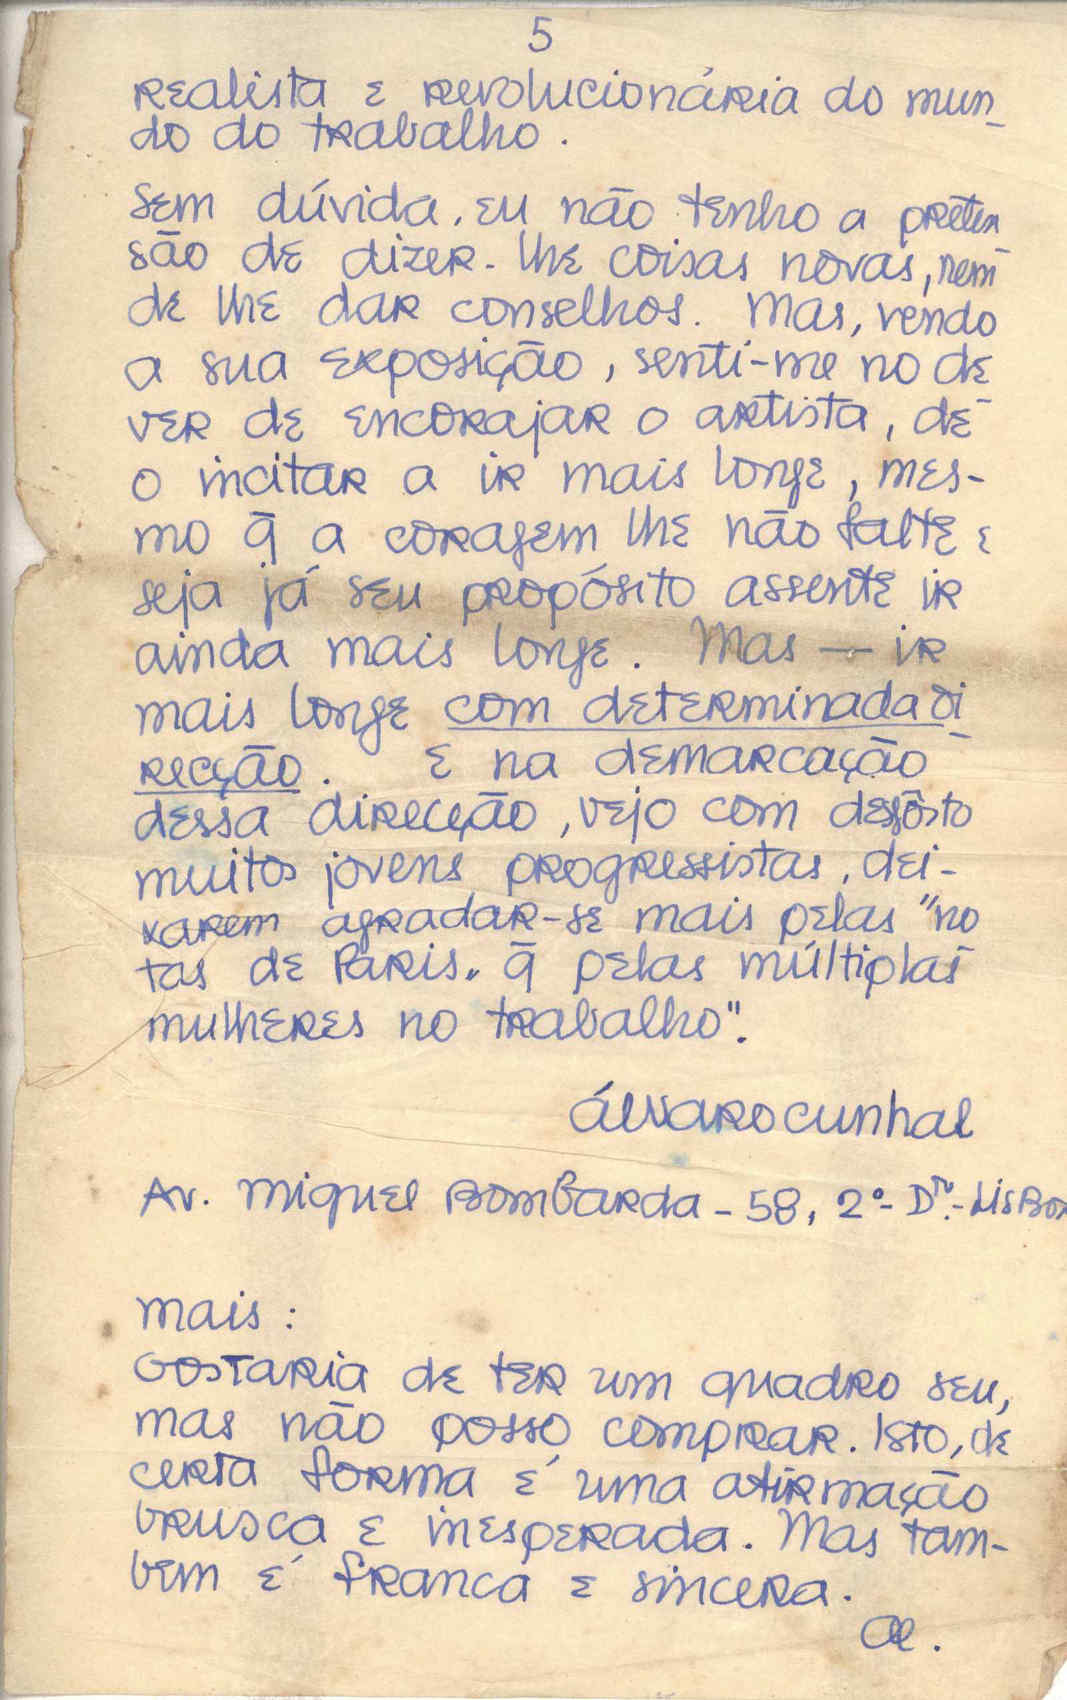 5
realista e revolucionária do mun-
do do trabalho.
Sem dúvida, eu não tenho a preten-
são de dizer-lhe coisas novas, nem
de lhe dar conselhos. Mas, vendo
a sua exposição, senti-me no de-
ver de encorajar o artista, de
o incitar a ir mais longe, mes-
mo q̄ a coragem lhe não falte e
seja já seu propósito assente ir
ainda mais longe. Mas — ir
mais longe com determinada di-
recção. E na demarcação
dessa direcção, vejo com desgôsto
muitos jovens progressistas, dei-
xarem agradar-se mais pelas "no
tas de Paris" q̄ pelas múltiplas
mulheres no trabalho".
Álvaro Cunhal
Av. Miguel Bombarda - 58, 2º - Dto. - Lisboa
Mais:
Gostaria de ter um quadro seu,
mas não posso comprar. Isto, de
certa forma é uma afirmação
brusca e inesperada. Mas tam-
bem é franca e sincera.